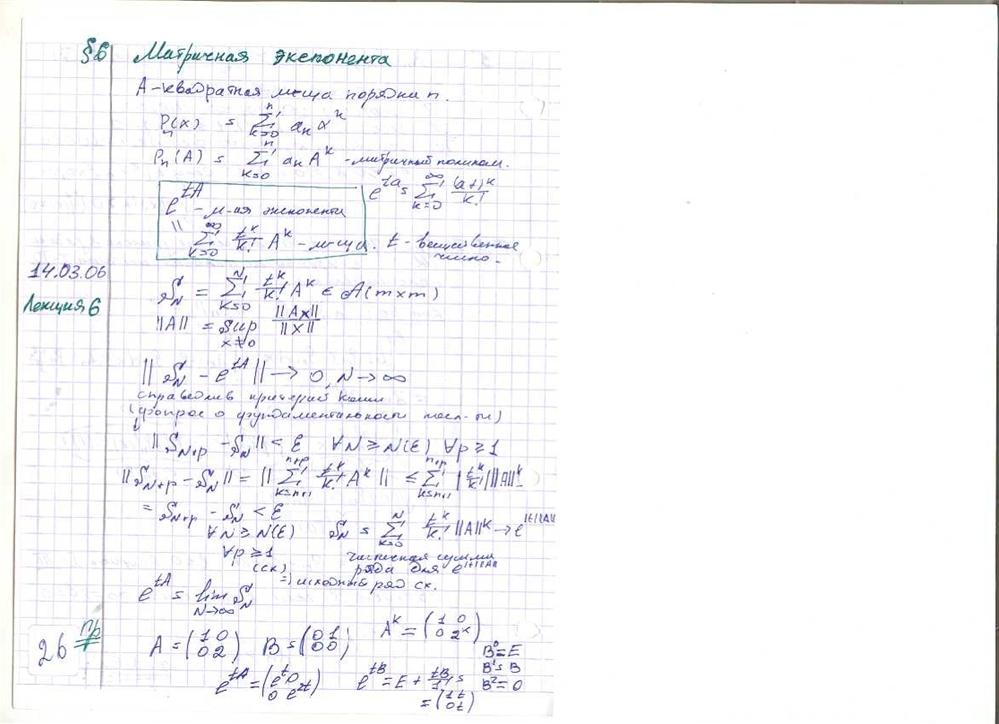 §6 Матричная экспонента
A-квадратная м-ца порядка n.
Pₙ(x) = Σ_{k=0}^{n} aₖ x^k
Pₙ(A) = Σ_{k=0}^{n} aₖ A^k - матричный полином.
e^{ta} = Σ_{k=0}^{∞} (at)^k/k!
e^{tA} - м-ая экспонента
|| Σ_{k=0}^{∞} t^k/k! A^k - м-ца. t - вещественное
число.
14.03.06
Лекция 6
S_N = Σ_{k=0}^{N} t^k/k! A^k ∈ A(m×m)
||A|| = sup_{x≠0} ||Ax||/||x||
||S_N - e^{tA}|| → 0, N → ∞
справедлив критерий Коши
(вопрос о фундаментальности посл-ти)
||S_{N+p} - S_N|| < ε ∀N ≥ N(ε) ∀p ≥ 1
||S_{N+p} - S_N|| = ||Σ_{k=n+1}^{n+p} t^k/k! A^k|| ≤ Σ_{k=n+1}^{n+p} |t^k/k!| ||A||^k =
= S_{N+p} - S_N < ε
∀N ≥ N(ε) S_N = Σ_{k=0}^{N} t^k/k! ||A||^k → e^{|t| ||A||}
∀p ≥ 1 частичная сумма
(сх) ряда для e^{|t| ||A||}
⇒ исходный ряд сх.
e^{tA} = lim_{N→∞} S_N
26
Пр
A = (1 0; 0 2) B = (0 1; 0 0) A^k = (1 0; 0 2^k)
B⁰ = E
B¹ = B
B² = 0
e^{tA} = (e^t 0; 0 e^{2t}) e^{tB} = E + tB/1! =
= (1 t; 0 1)